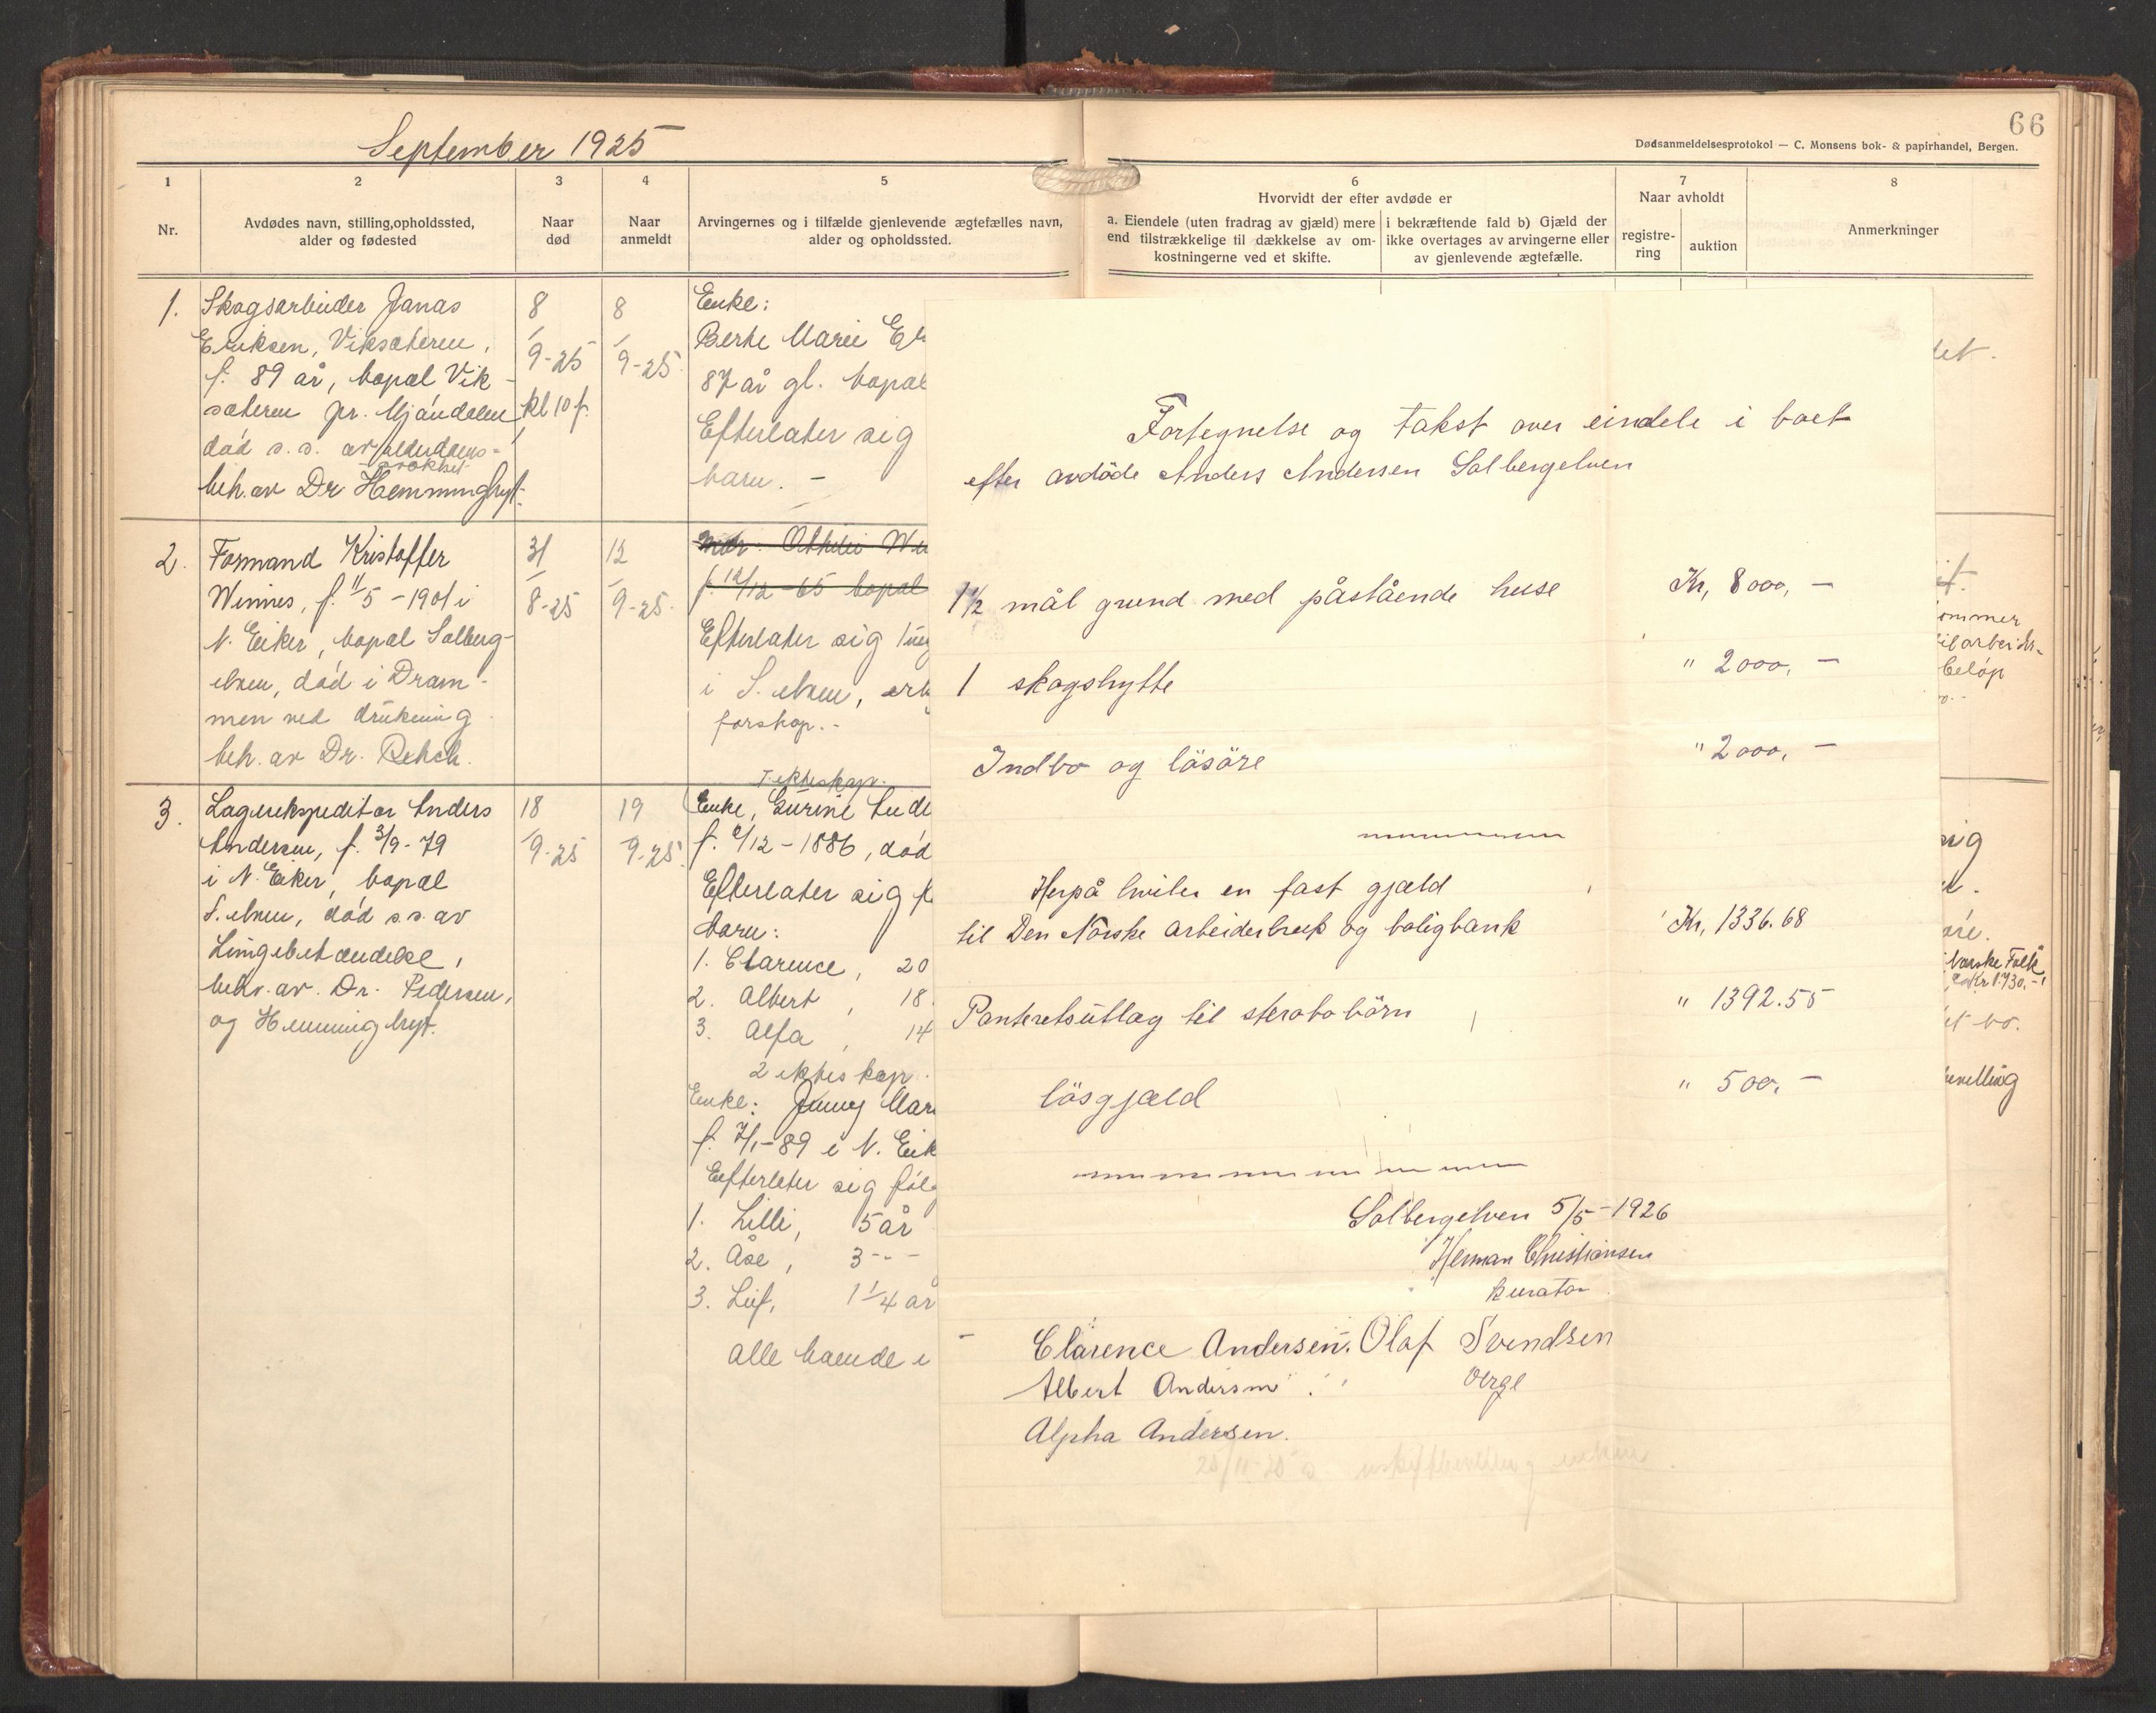 September 1925
66
Dødsanmeldelsesprotokol — C. Monsens bok- & papirhandel, Bergen.
1
Nr.
2
Avdødes navn, stilling, opholdssted,
alder og fødested
3
Naar
død
4
Naar
anmeldt
5
Arvingernes og i tilfælde gjenlevende ægtefælles navn,
alder og opholdssted.
6
Hvorvidt der efter avdøde er
a. Eiendele (uten fradrag av gjæld) mere
end tilstrækkelige til dækkelse av om-
kostningerne ved et skifte.
i bekræftende fald b) Gjæld der
ikke overtages av arvingerne eller
av gjenlevende ægtefælle.
7
Naar avholdt
registre-
ring
auktion
8
Anmerkninger
1.
Skogsarbeider Jonas
Eriksen, Viksæteren,
f. 89 år, bopæl Vik-
sæteren pr. Mjøndalen
død s.s. av alderdoms-
svakhet
beh. av Dr Hemminghyt.
8
/
9-25
kl 10 f.
8
/
9-25.
Enke:
Berte Marie
87 år gl. bopæl
Efterlater sig
barn. -
2.
Formand Kristoffer
Winnes, f. 11/5-1901 i
N. Eiker, bopæl Solberg-
elven, død i Dram-
men ved drukning
beh. av Dr.
31
/
8-25
12
/
9-25.
Mor: Othilie
f. 12/12-65 bopæl
Efterlater sig
i S. elven,
3.
Lagerekspeditør Anders
Andersen, f. 3/9-79
i N. Eiker, bopæl
S. elven, død s.s. av
Lungebetændelse,
beh. av. Dr. Pedersen,
og Hemminghyt.
18
/
9-25
19
/
9-25.
1. ekteskap.
Enke, Gurine
f. /12-1886, død
Efterlater sig
barn:
1. Clarence, 20
2. Albert, 18
3. Alfa, 14
2 ekteskap.
Enke: Jenny
f. 7/1-89 i N. Eik
Efterlater sig følg
1. Lilli, 5 år
2. Åse, 3 -"-
3. Leif, 1 1/4 år
Alle boende i
Fortegnelse og takst over eindele i boet
efter avdøde Anders Andersen Solbergelven
1½ mål grund med påstående huse Kr, 8000, —
1 skogshytte " 2000, —
Indbo og løsøre " 2000, —
Herpå hviler en fast gjæld
til Den Norske arbeiderbruk og boligbank Kr, 1336.68
Panteretsutlæg til skrabobørn " 1392.55
løsgjæld " 500, —
Solbergelven 5/5-1926
Herman Christiansen
kurator
Clarence Andersen. Olaf Svendsen
Albert Andersen Verge
Alpha Andersen.
ommer
beløp
Norske Folk
Kr 1730.-